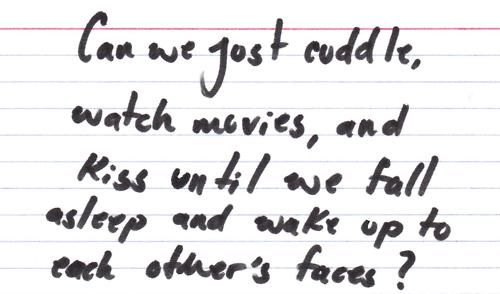 Can we just cuddle,
watch movies, and
kiss until we fall
asleep and wake up to
each other's faces?